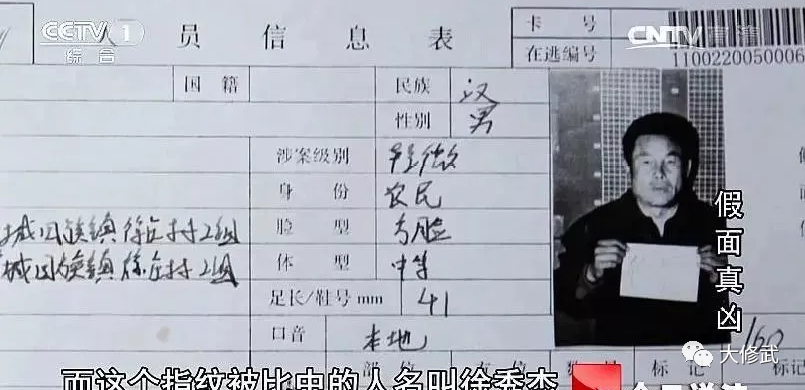 CCTV 1
综合
人员信息表
卡号
CNTV 直播
在逃编号
1100220050006
国籍
民族
汉
性别
男
涉案级别
轻微
身份
农民
城回族镇徐庄村2组
脸型
方脸
城回族镇徐庄村2组
体型
中等
足长/鞋号mm
41
口音
本地
160
假面真凶
大修武
部位
标记
而这个指纹被比中的人名叫徐秀杰